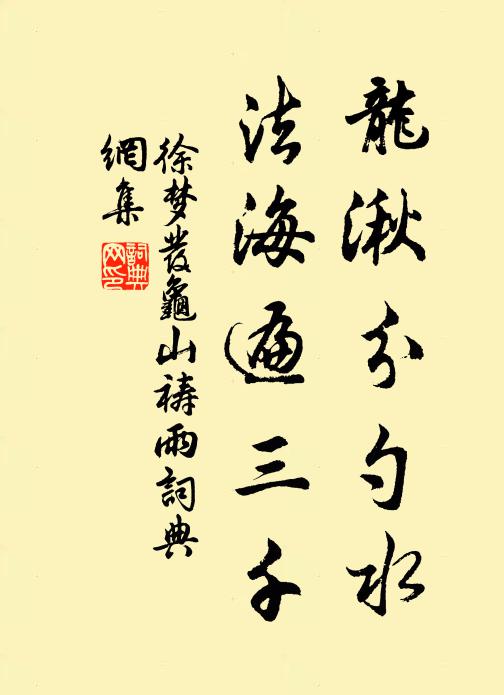 龍湫分勺水
法海遍三千
徐梦發龜山祷雨詞典
網集
詞典网印